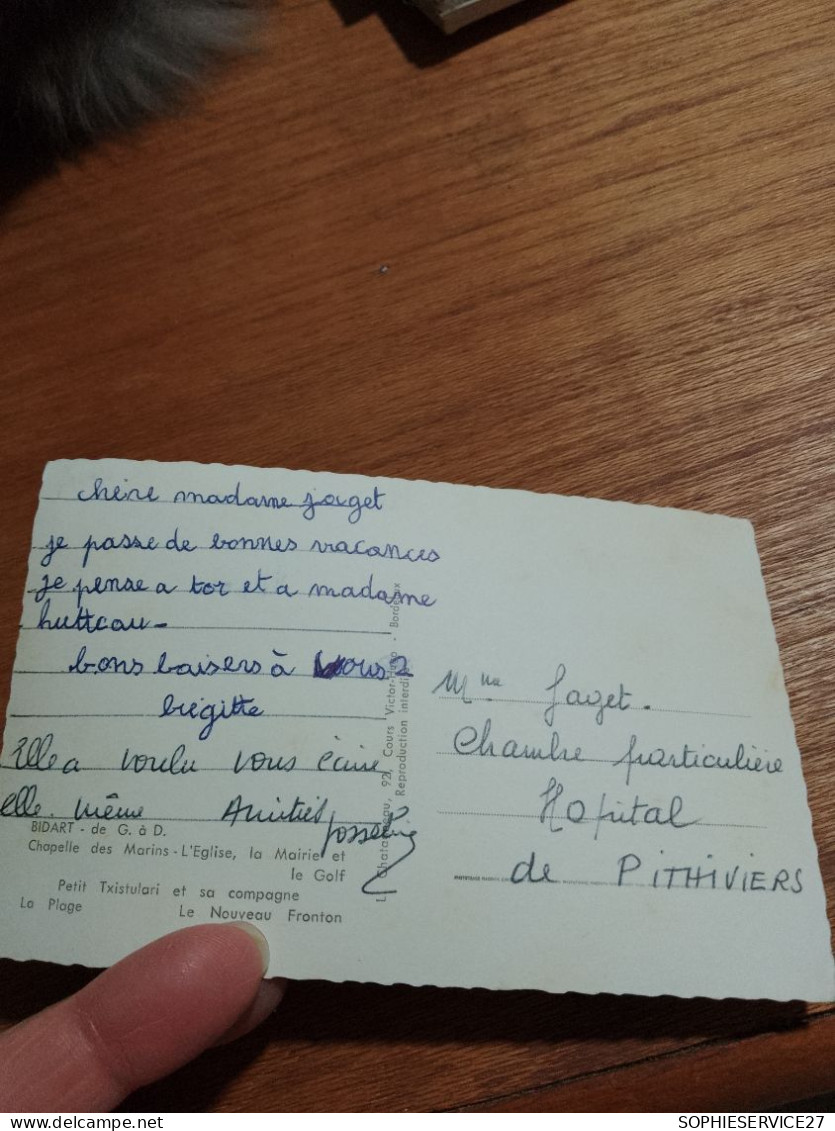 chère madame jaget
je passe de bonnes vacances
je pense a toi et a madame
huttcau-
bons baisers à vous 2
brigitte
Elle a voulu vous écrire
elle même Amitiés
BIDART - de G. à D.
Chapelle des Marins - L'Eglise, la Mairie et
le Golf
Petit Txistulari et sa compagne
La Plage Le Nouveau Fronton
92, Cours Victor-Hugo - Bordeaux
Reproduction interdite
Mme Jaget.
Chambre particulière
Hopital
de PITHIVIERS
SOPHIESERVICE27